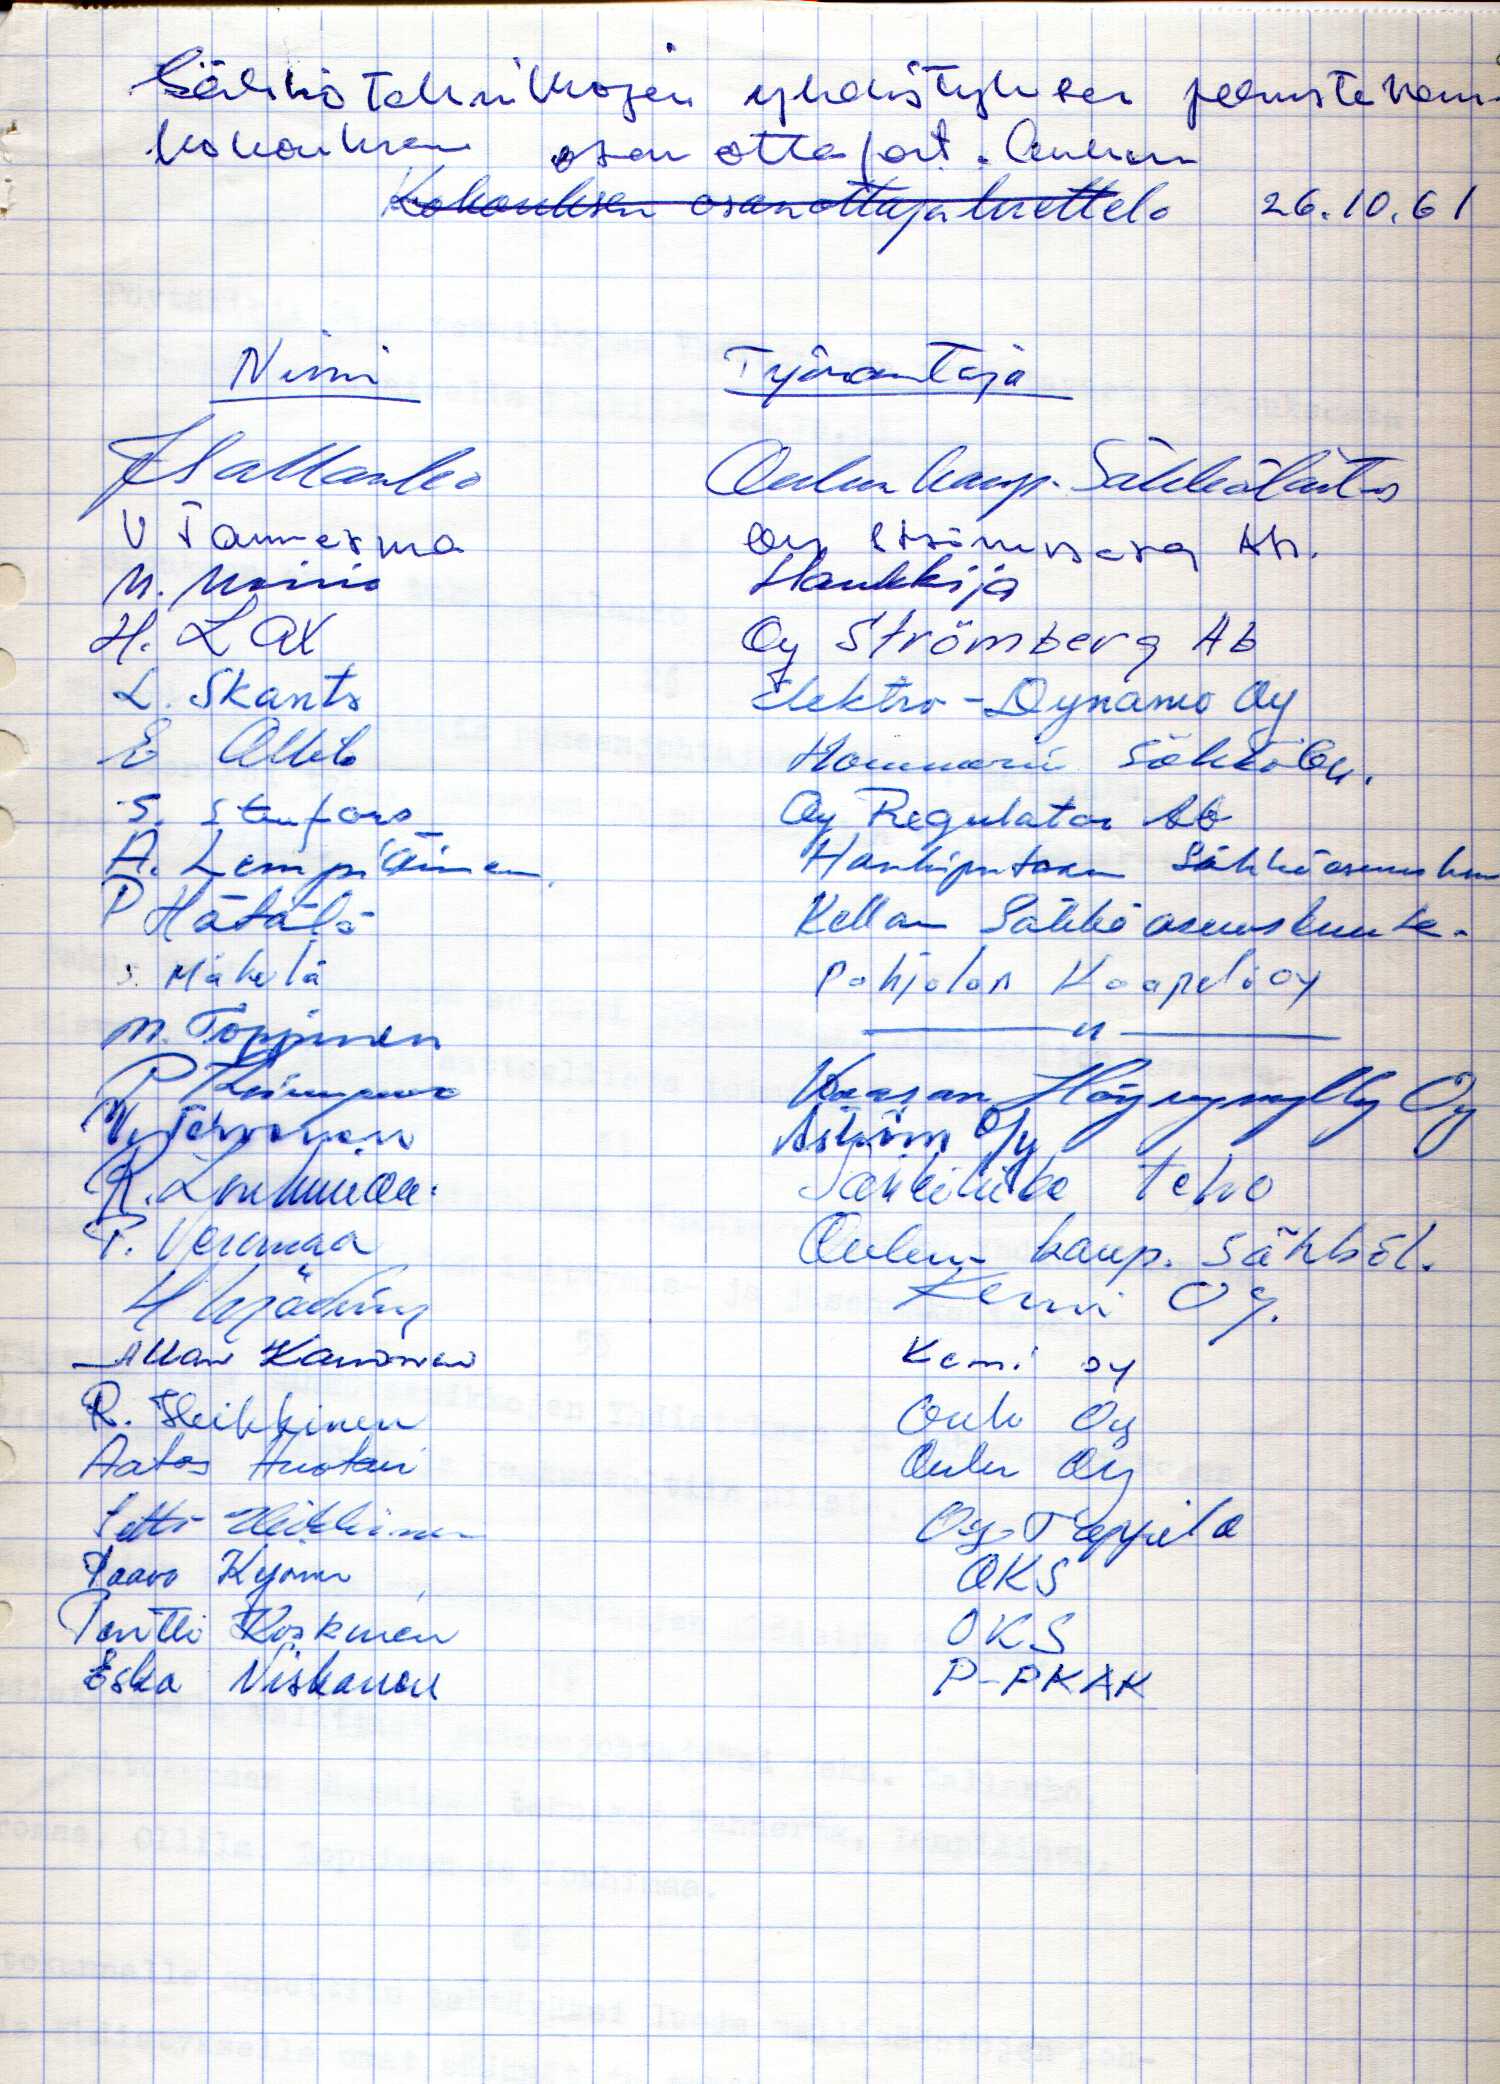 Sähköteknikkojen yhdistyksen perustavan
kokouksen osanottajat. Oulun
Kokouksen osanottajaluettelo 26.10.61
Nimi Työnantaja
J Sallanko Oulun kaup. Sähkölaitos
V Tannerma Oy Strömberg Ab.
M. Hankkija
H. Lax Oy Strömberg Ab
L. Skants Elektro-Dynamo Oy
E Ollila Sähkö Oy.
S. Stenfors Oy Regulator Ab
A. Lempiäinen Haukiputaan Sähköosuuskun
P Hätälä Kellon Sähköosuuskunta.
S. Mäkelä Pohjolan Kaapeli oy
M. Toppinen —— " ——
P Vaasan Höyrymylly Oy
V. Tervonen Åström O/y
R. Louhimaa. Sähköliike Teho
P. Veromaa Oulun kaup. Sähköl.
H Kemi OY.
Allan Karvonen Kemi oy
R. Heikkinen Oulu Oy
Aatos Huotari Oulu Oy
Heikkinen Oy Toppila
Paavo OKS
Pentti Koskinen OKS
Esko Niskanen P-PKAK